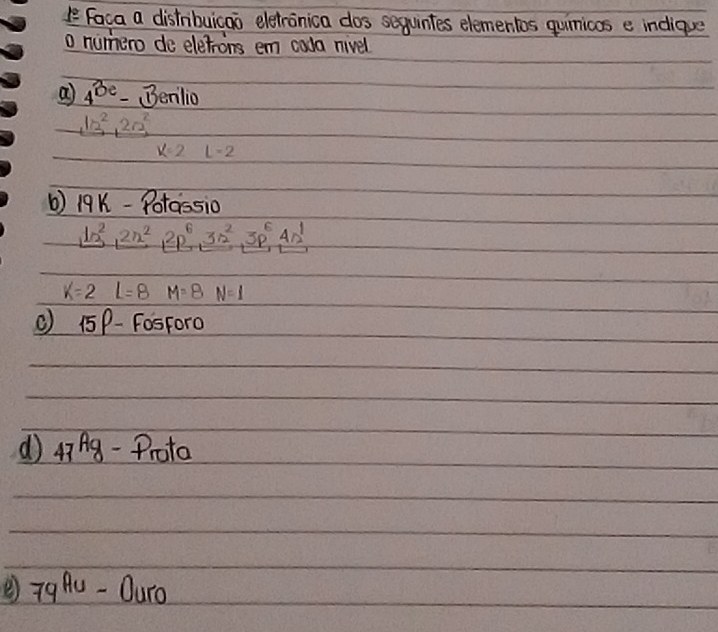 1º Faça a distribuição eletrônica dos seguintes elementos químicos e indique
o número de elétrons em cada nível
a) 4Be - Berílio
1s² 2s²
K=2 L=2
b) 19K - Potássio
1s² 2s² 2p⁶ 3s² 3p⁶ 4s¹
K=2 L=8 M=8 N=1
c) 15P - Fósforo
d) 47Ag - Prata
e) 79Au - Ouro